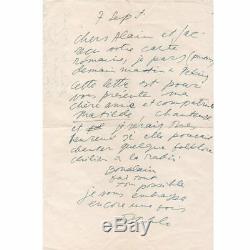 7 Sept
chers Alain et
reçu votre carte
romaine, je pars
demain matin à Pékin
cette lettre est pour
vous présenter ma
chère amie et compatriote
Matilde chanteuse
et je serais
heureux si elle pouvait
chanter quelque folklore
chilien à la radio.
tout
possible
je vous embrasse
encore une fois
Pablo